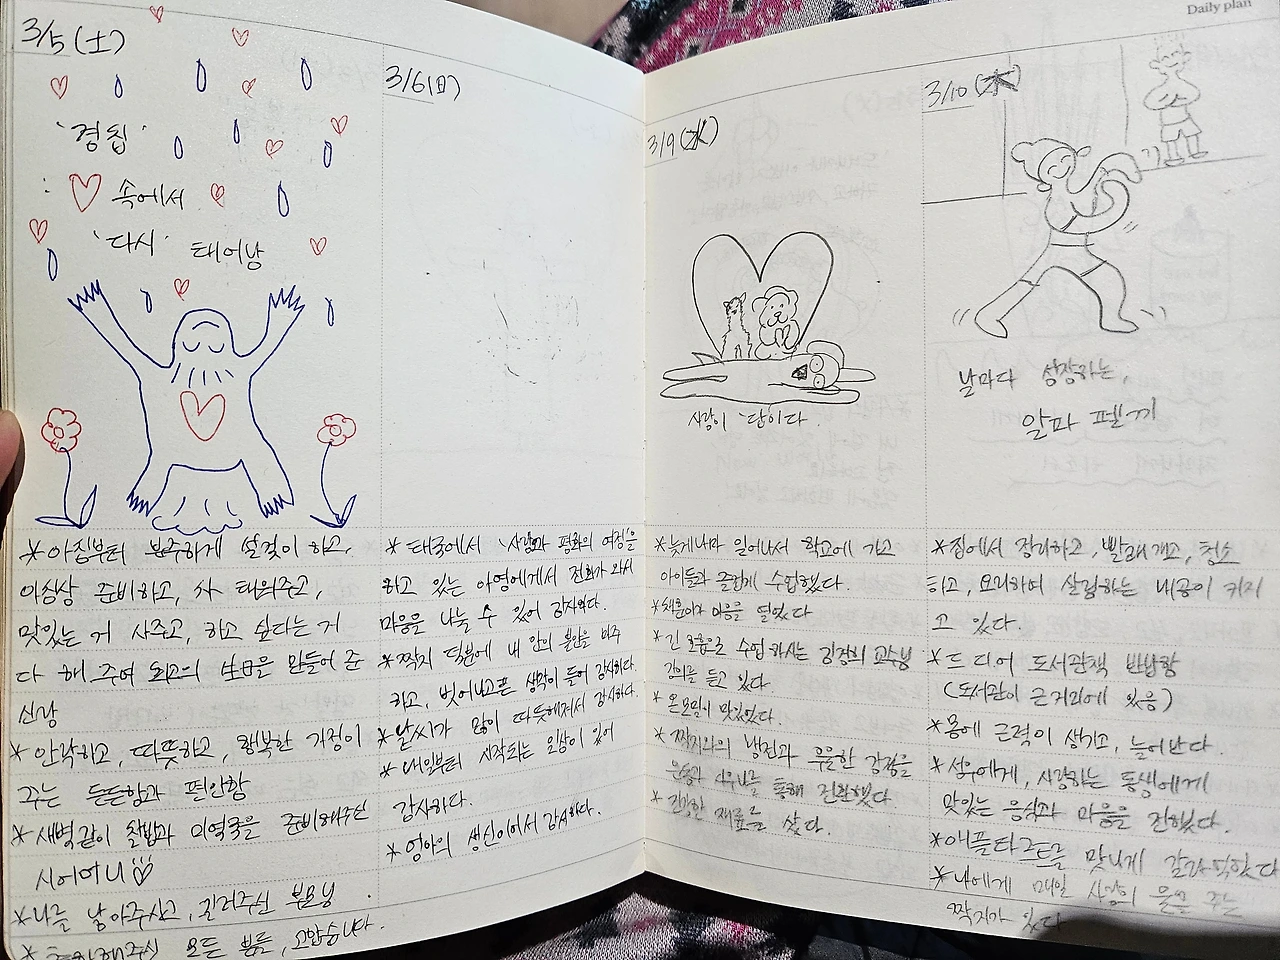 3/5(土)
'경칩'
: ♡ 속에서
'다시' 태어남
* 아침부터 분주하게 설겆이 하고,
이삿상 준비하고, 차 태워주고,
맛있는 거 사주고, 하고 싶다는 거
다 해 주며 최고의 生日을 만들어 준
신랑
* 안락하고, 따뜻하고, 행복한 가정이
주는 든든함과 편안함
* 새벽같이 찰밥과 미역국을 준비해주신
시어머니
* 나를 낳아주시고, 길러주신 부모님.
* 축하해주신 모든 분들, 고맙습니다.
3/6(日)
* 태국에서 '사랑과 평화의 여정'을
하고 있는 아영에게서 전화가 와서
마음을 나눌 수 있어 감사하다.
* 짝지 덕분에 내 안의 불안을 마주
하고, 벗어나고픈 생각이 들어 감사하다
* 날씨가 많이 따뜻해져서 감사하다.
* 내일부터 시작되는 일상이 있어
감사하다.
* 영아의 생신이어서 감사하다.
Daily plan
3/9(水)
사랑이 '답'이다.
* 늦게나마 일어나서 학교에 가고
아이들과 즐겁게 수업했다.
* 마음을 열었다
* 긴 호흡으로 수업 하시는 교수님
강의를 듣고 있다.
* 맛있었다.
* 짝지와의 냉전과 우울한 감정을
운동과 통해 전환했다
* 건강한 재료를 샀다.
3/10(木)
날마다 성장하는,
알파 펠끼
* 집에서 정리하고, 빨래 개고, 청소
하고, 요리하며 살림하는 내공이 커지
고 있다.
* 드디어 도서관책 반납함
(도서관이 근거리에 있음)
* 몸에 근력이 생기고, 늘어난다.
* 사랑하는 동생에게
맛있는 음식과 마음을 전했다.
* 애플타르트를 맛나게 갈라 먹었다
* 나에게 매일 사랑의 물을 주는
짝지가 있다